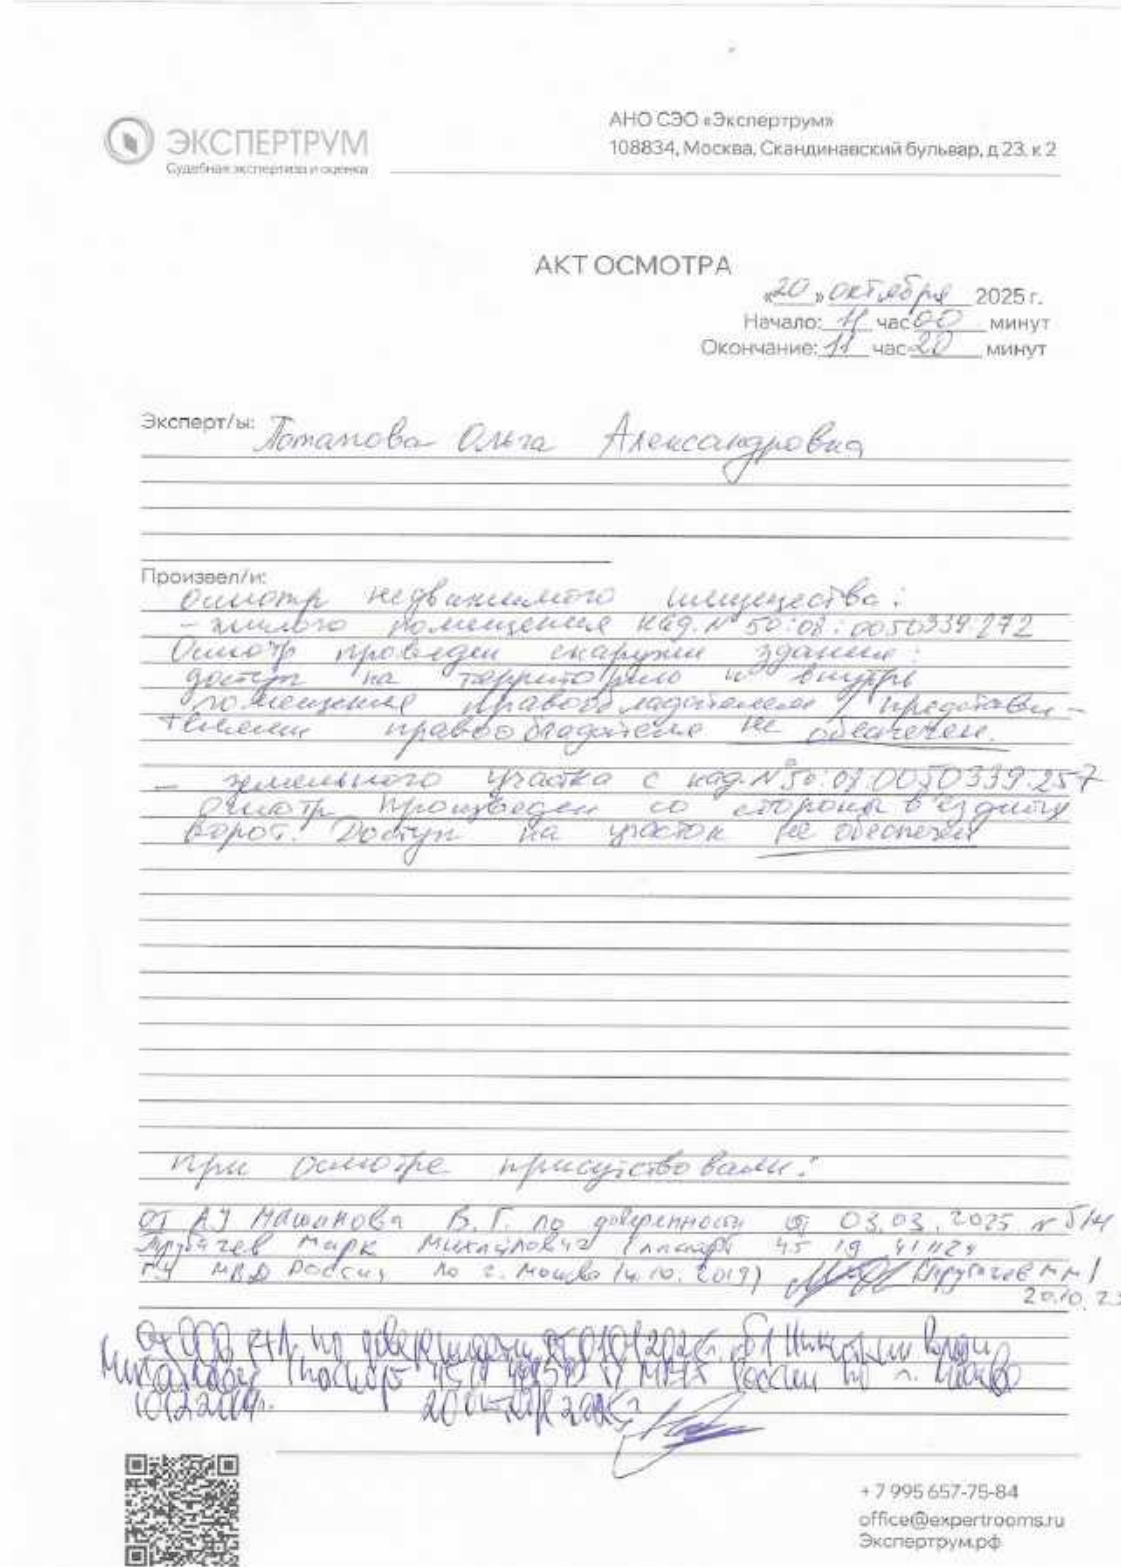 ЭКСПЕРТРУМ
Судебная экспертиза и оценка
АНО СЭО «Экспертрум»
108834, Москва, Скандинавский бульвар, д 23, к 2
АКТ ОСМОТРА
«20» октября 2025 г.
Начало: 11 час 00 минут
Окончание: 11 час 20 минут
Эксперт/ы: Потапова Ольга Александровна
Произвел/и:
осмотр недвижимого имущества:
- жилого помещения кад. № 50:08:0050339:272
Осмотр проведен снаружи здания:
доступ на территорию и внутрь
помещения правообладателем / представи-
телями правообладателя не обеспечен.
- земельного участка с кад. № 50:08:0050339:257
Осмотр произведен со стороны въездных
ворот. Доступ на участок не обеспечен
При осмотре присутствовали:
от АУ Машанова В. Г. по доверенности от 03.03.2025 №
Марк Михайлович (паспорт 45 19
ГУ МВД России по г. Москве 14.10.2019)
20.10.25
От ООО по доверенности от
паспорт России по г. Москве
20 октября 2025г
+ 7 995 657-75-84
office@expertrooms.ru
Экспертрум.рф